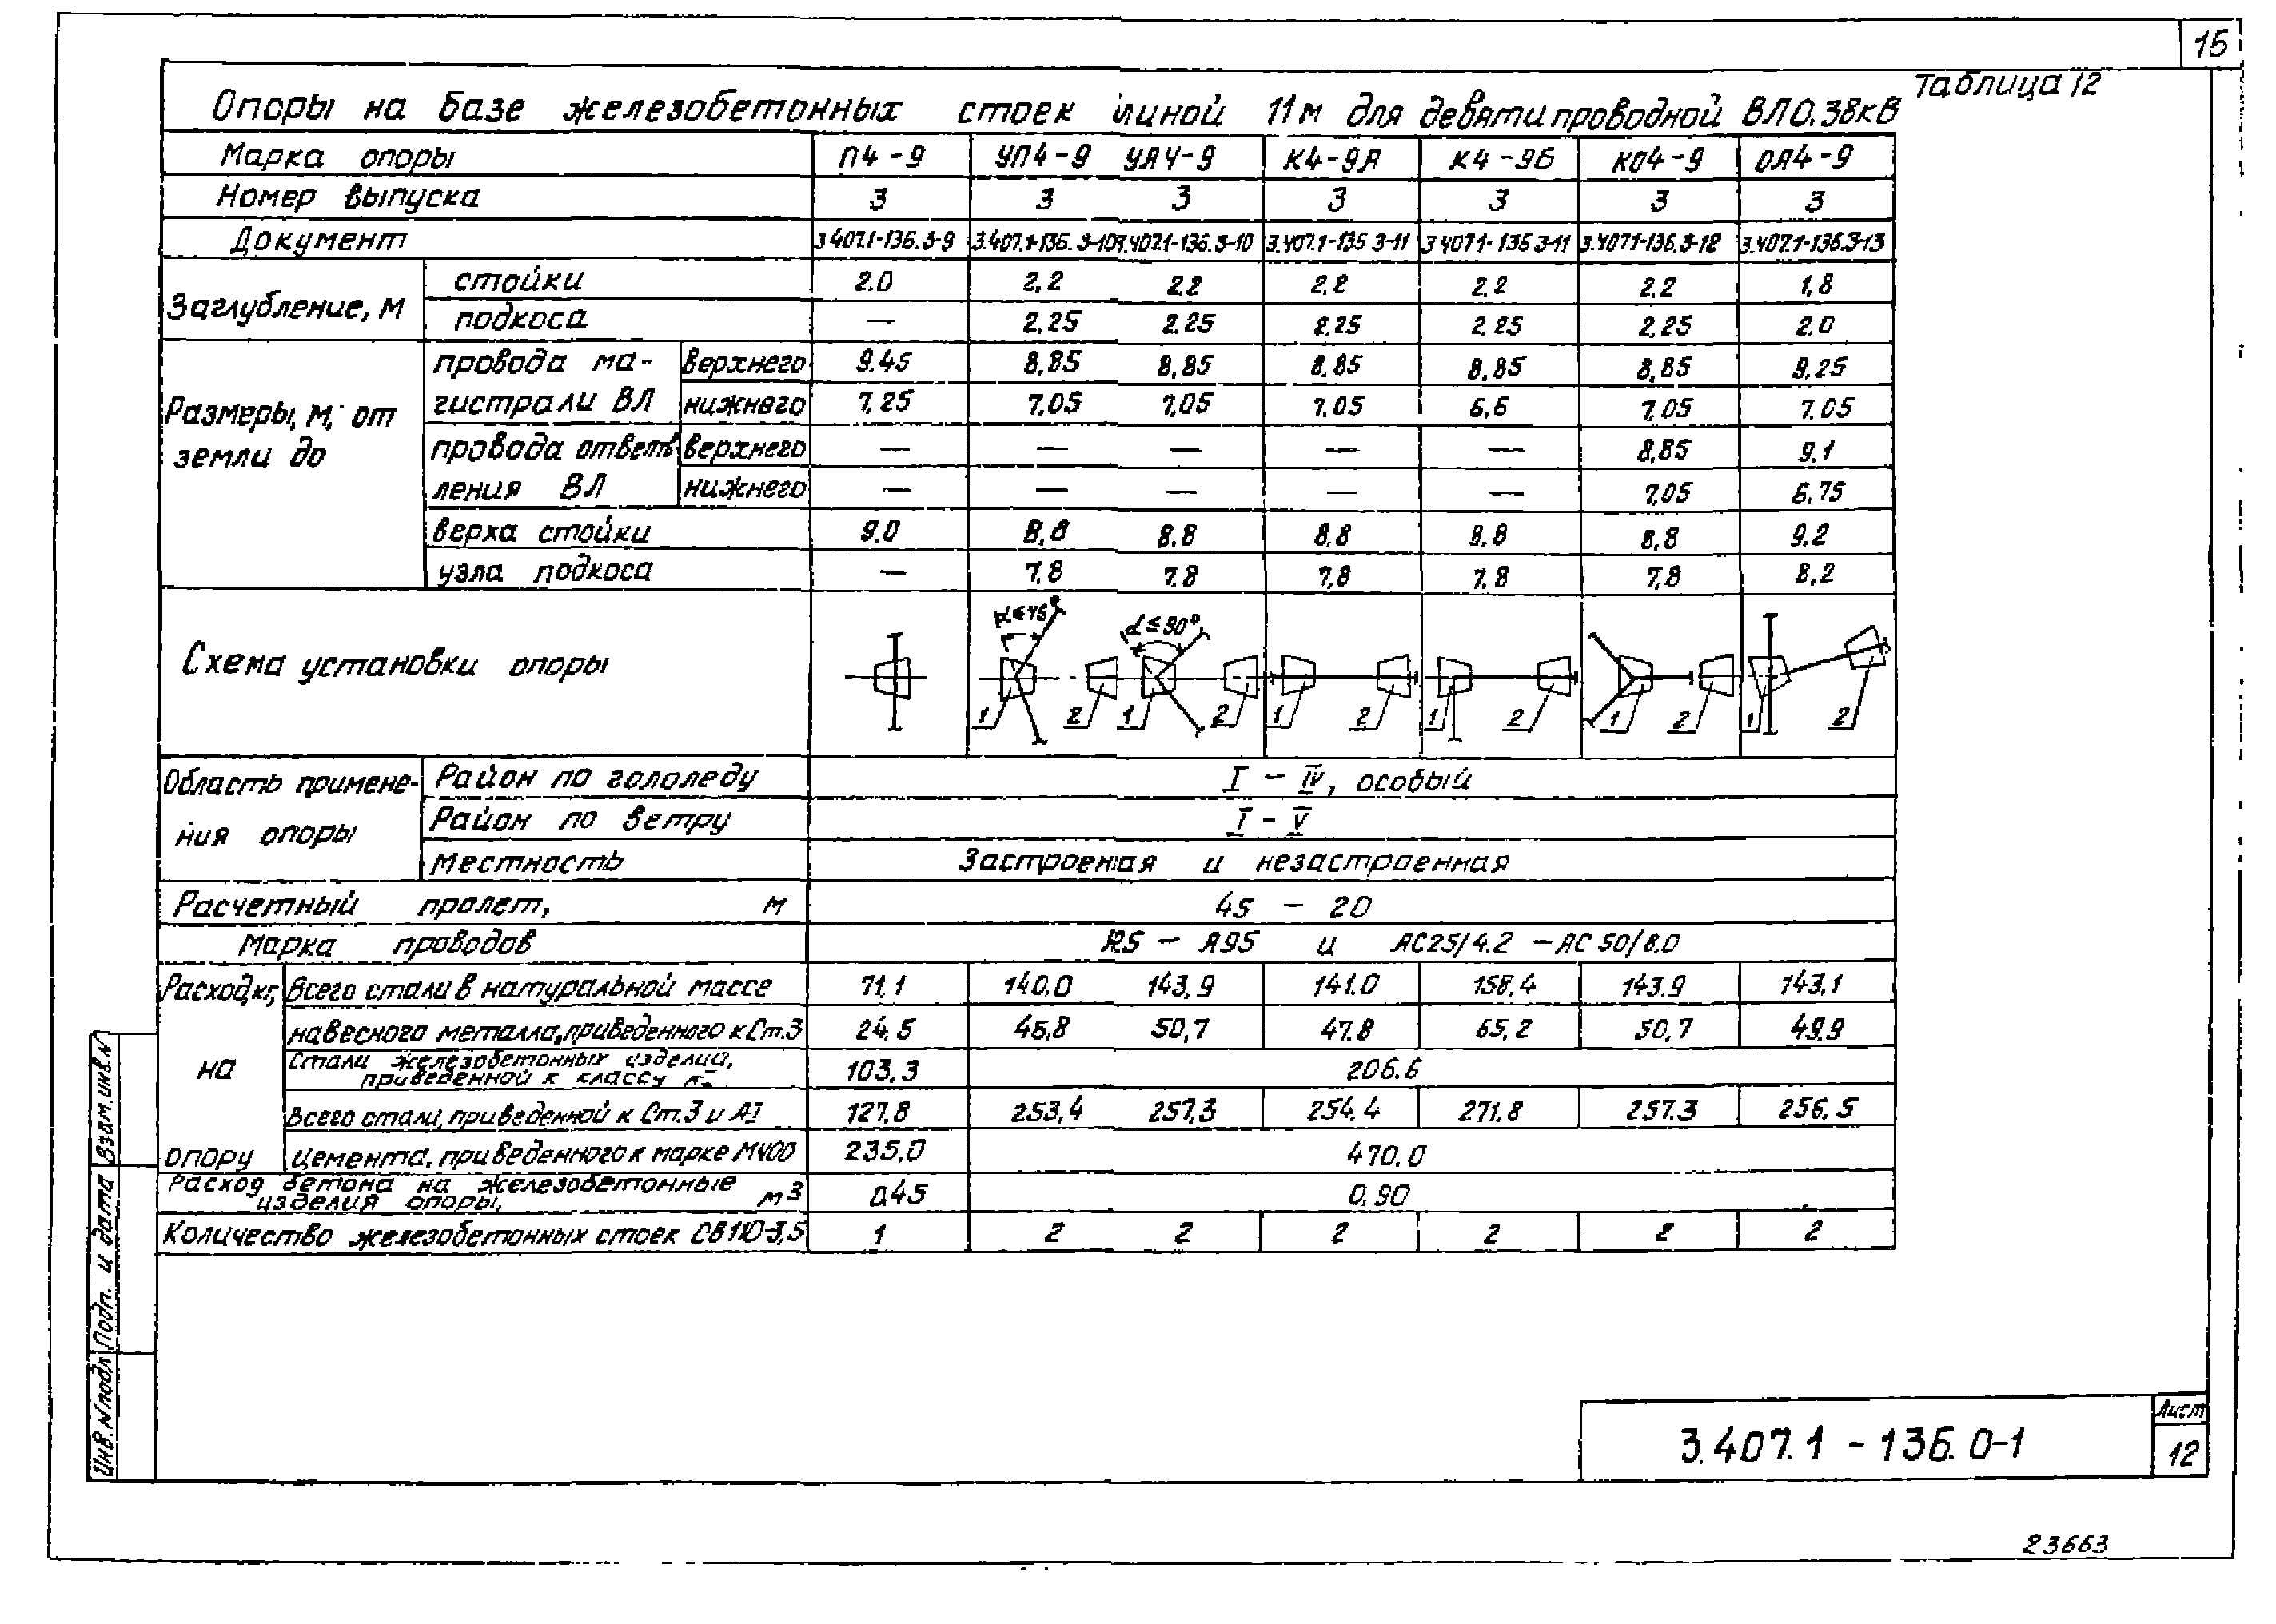 15
Таблица 12
Опоры на базе железобетонных стоек длиной 11м для девятипроводной ВЛ0.38кВ
Марка опоры П4-9 УП4-9 УА4-9 К4-9А К4-9Б КО4-9 ОА4-9
Номер выпуска 3 3 3 3 3 3 3
Документ 3.407.1-136.3-9 3.407.1-136.3-10 3.407.1-136.3-10 3.407.1-136.3-11 3.407.1-136.3-11 3.407.1-136.3-12 3.407.1-136.3-13
Заглубление, м стойки 2.0 2,2 2.2 2,2 2,2 2,2 1,8
подкоса — 2.25 2.25 2,25 2.25 2,25 2.0
Размеры, м, от земли до
провода ма- верхнего 9.45 8,85 8,85 8,85 8,85 8,85 9,25
гистрали ВЛ нижнего 7,25 7,05 7,05 7.05 6,6 7,05 7.05
провода ответв верхнего — — — — — 8,85 9.1
ления ВЛ нижнего — — — — — 7,05 6.75
верха стойки 9.0 8,8 8.8 8.8 8.8 8,8 9,2
узла подкоса — 7,8 7.8 7,8 7.8 7,8 8,2
Схема установки опоры
α≤45°
α≤90°
1 2 1 2 1 2 1 2 1 2 1 2
Область примене-
ния опоры
Район по гололеду I – IV, особый
Район по ветру I – V
Местность Застроенная и незастроенная
Расчетный пролет, м 45 – 20
Марка проводов А25 – А95 и АС25/4.2 – АС50/8.0
Расход кг, Всего стали в натуральной массе 71,1 140,0 143,9 141.0 158,4 143.9 143,1
навесного металла, приведенного к Ст.3 24,5 46,8 50,7 47.8 65,2 50,7 49.9
на Стали железобетонных изделий,
приведенной к классу 103,3 206.6
Всего стали, приведенной к Ст.3 и АI 127,8 253,4 257,3 254,4 271,8 257.3 256,5
опору Цемента, приведенного к марке М400 235,0 470,0
Расход бетона на железобетонные
изделия опоры, м3 0,45 0,90
Количество железобетонных стоек СВ110-3,5 1 2 2 2 2 2 2
Взам.инв.№
Подп. и дата
Инв.№подл
3.407.1 - 136.0-1
Лист
12
23663